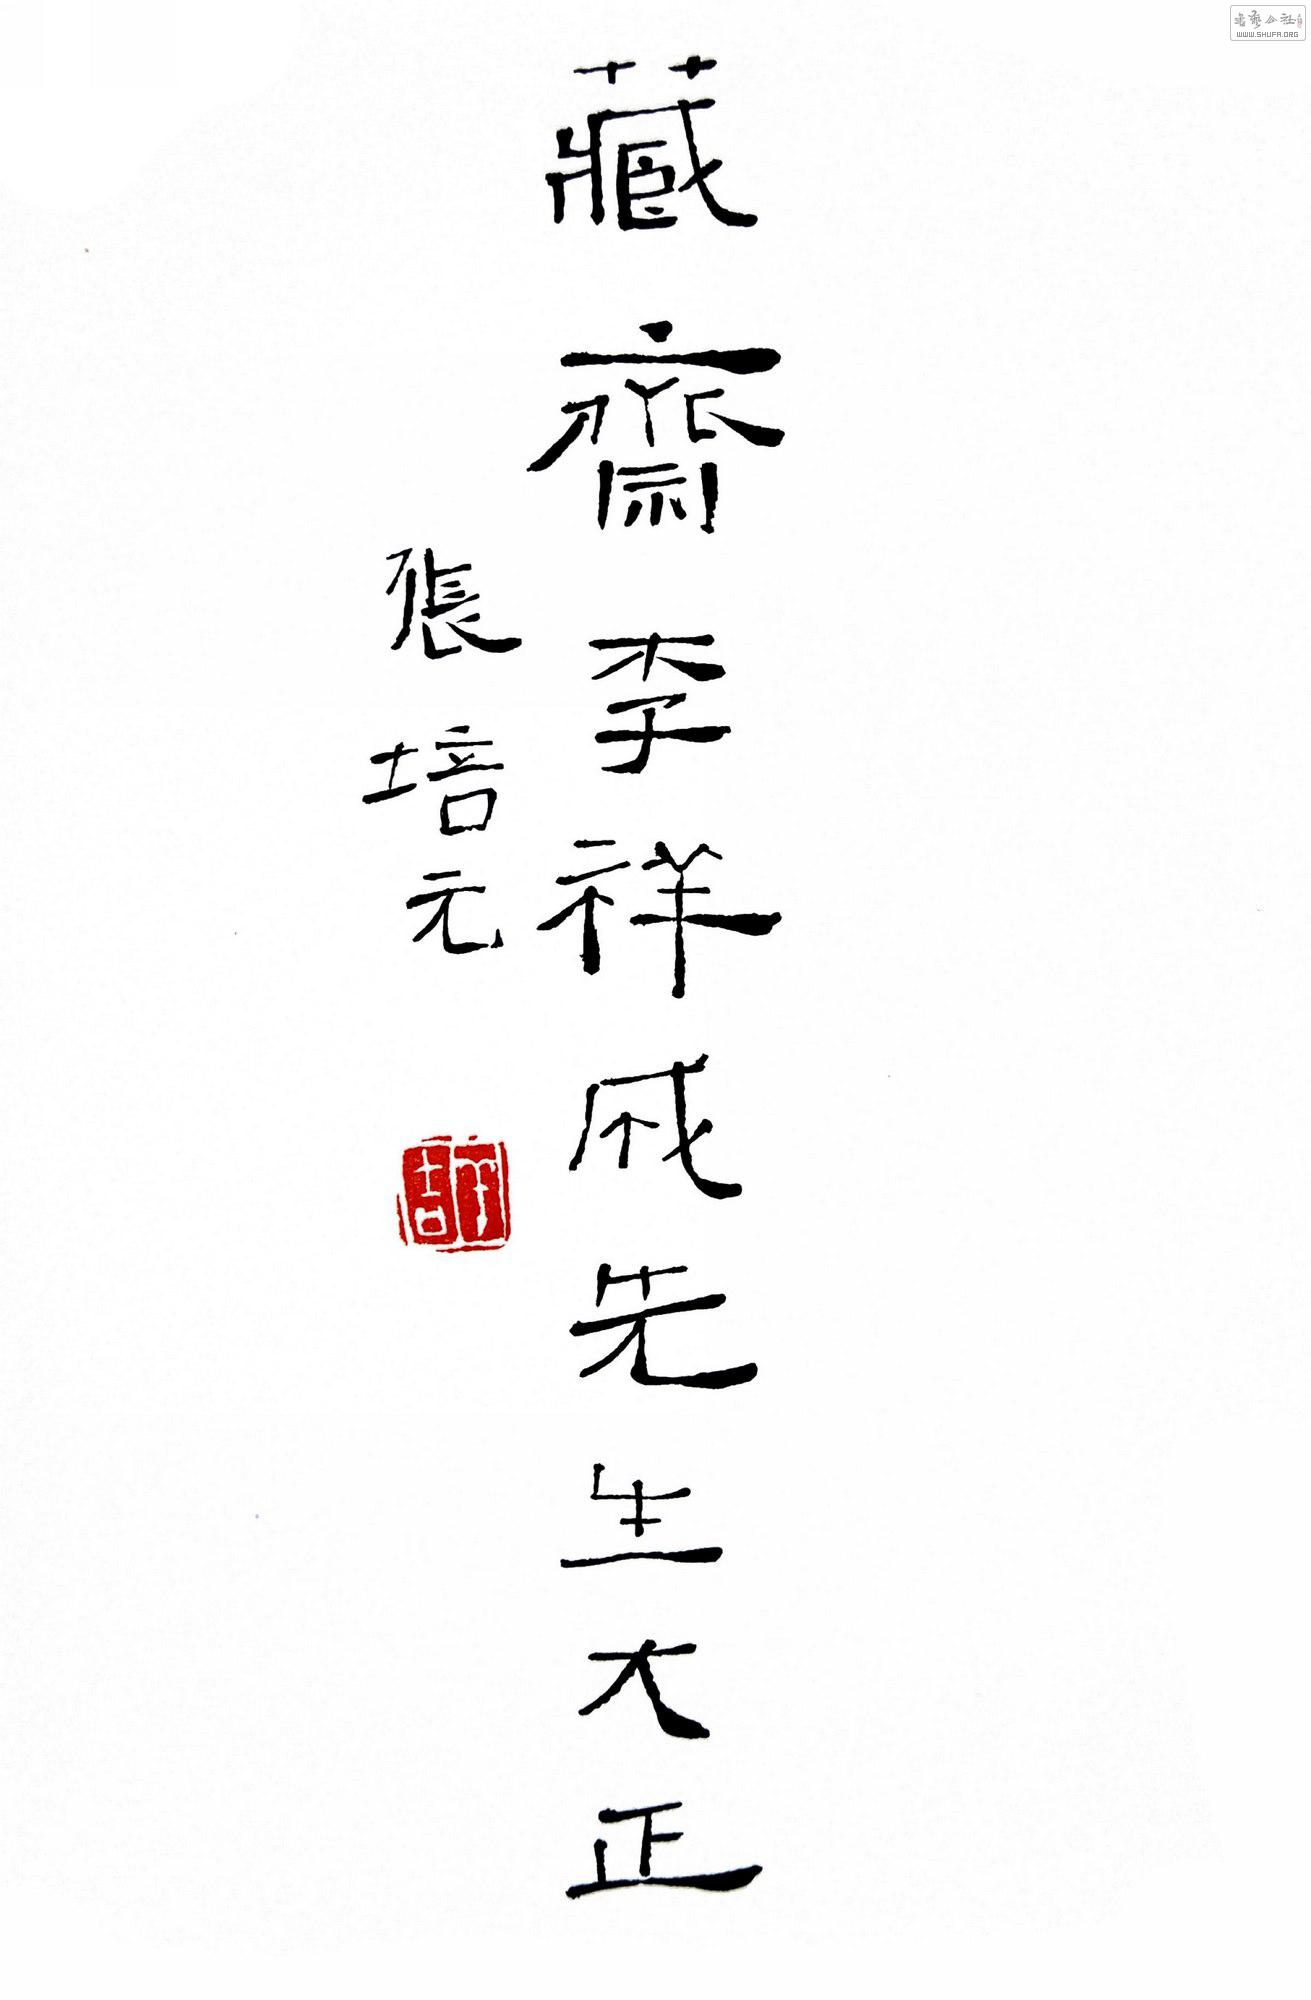 藏齋李祥成先生大正
張培元
WWW.SHUFA.ORG